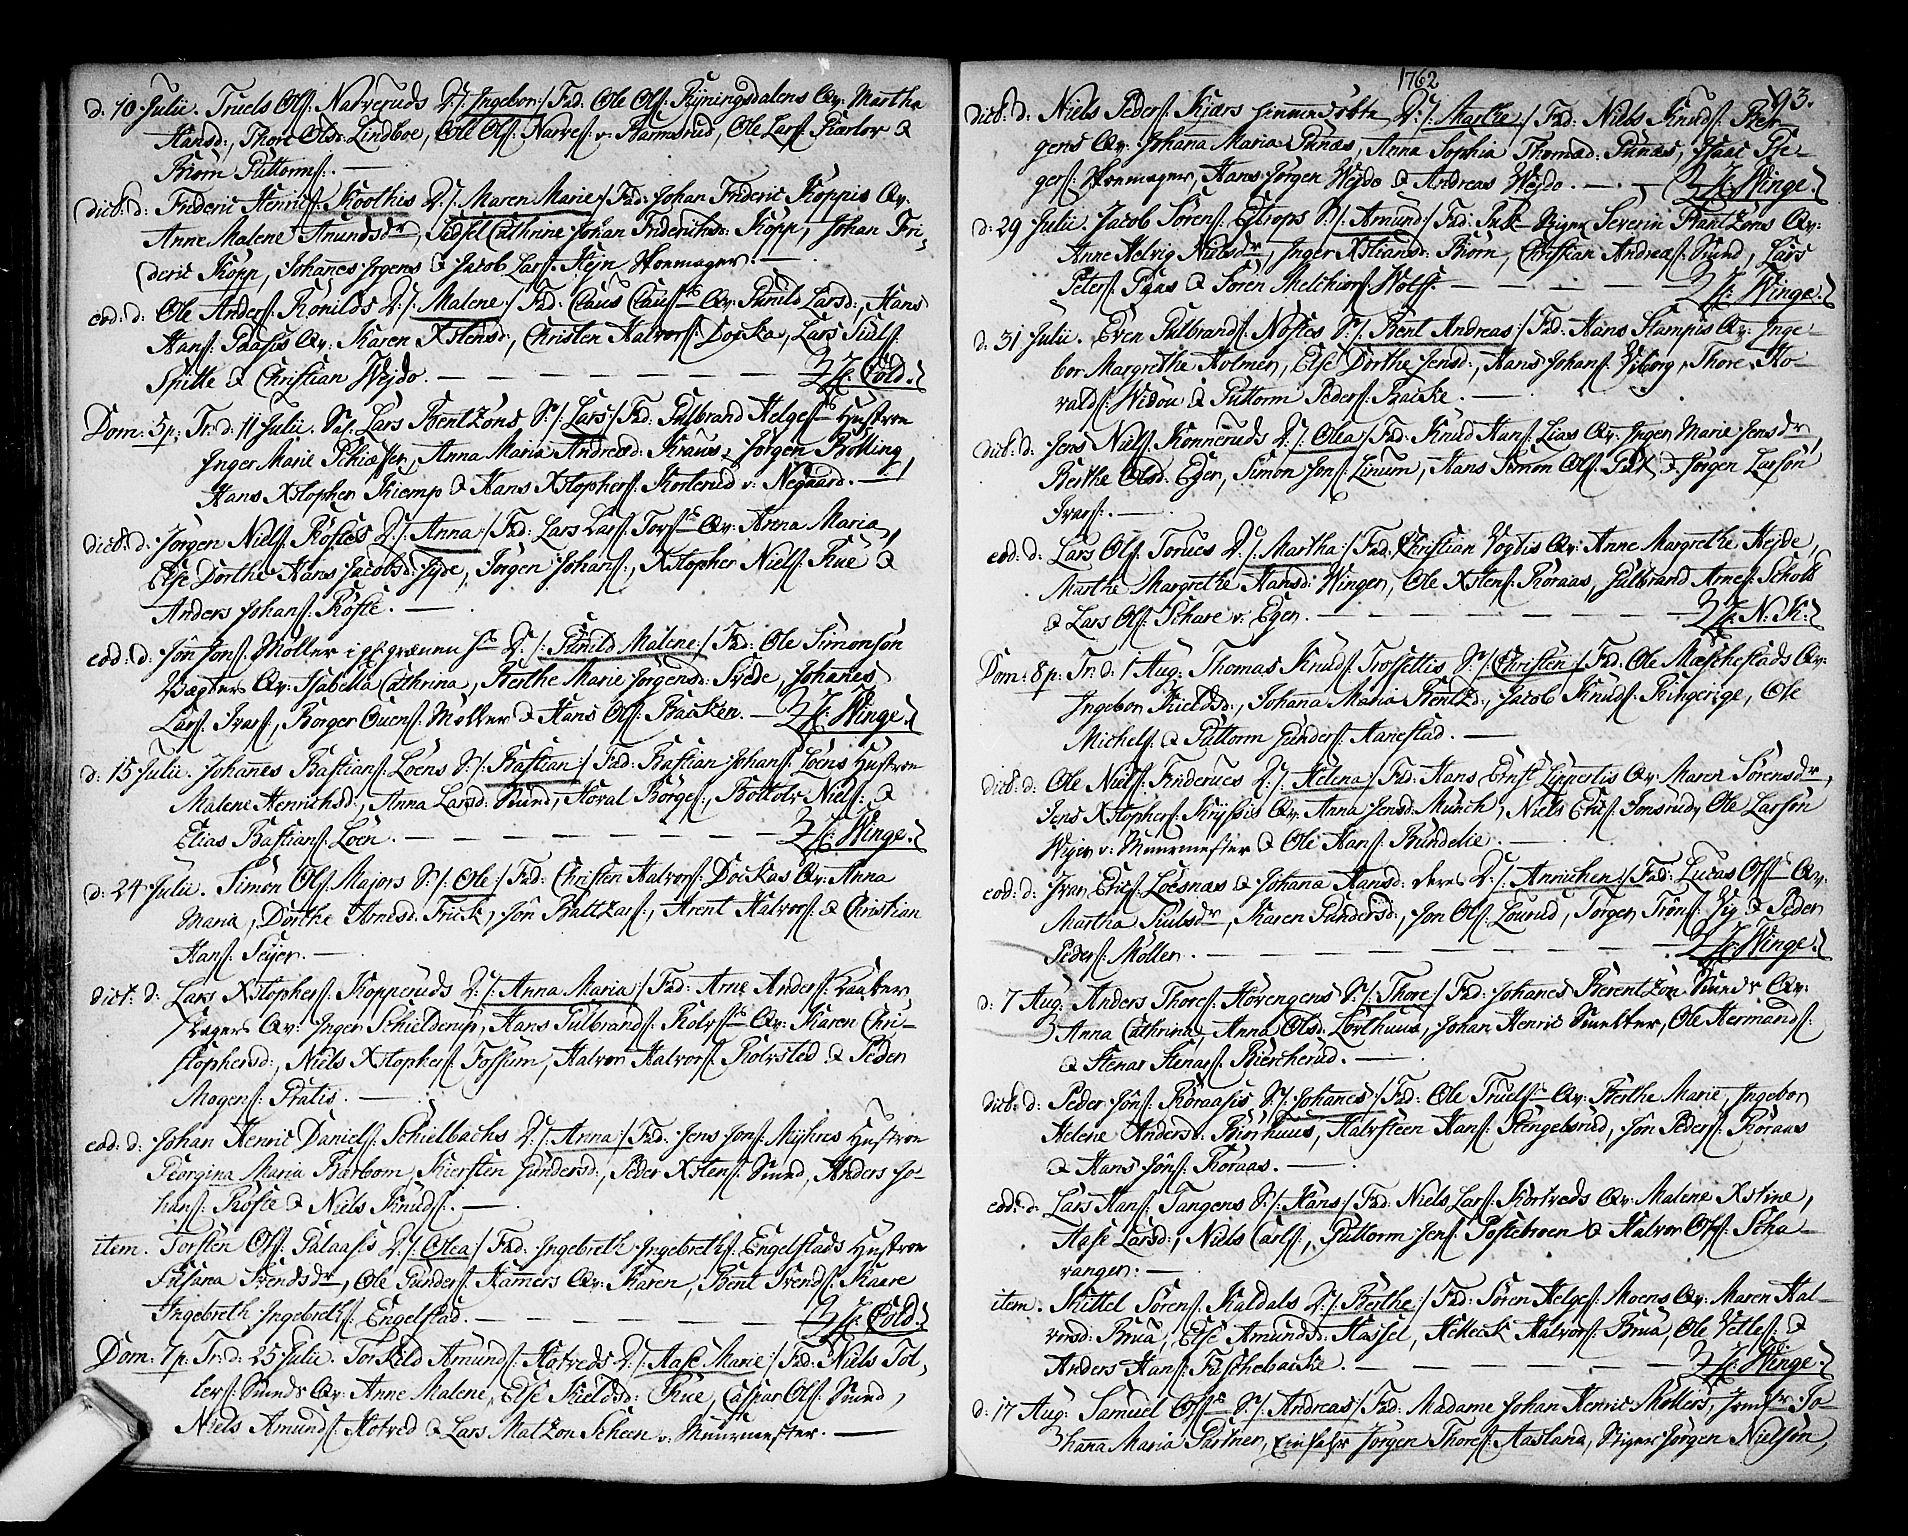 d. 10 Julii. Truels Ols: Narveruds D./: Ingebor:/ Fad: Ole Ols: Ryningsdalens Qv: Martha
Hansd:, Thore Olds: Lindboe, Ole Ols: Narves v: Ramsrud, Ole Lars: Karlov &
Biörn Guttorms:. —
dict: d: Frideric Henrics: Koothis D./: Maren Marie:/ Fad: Johan Frideric Koppis Qv:
Anne Malene Amundsdr, Sidsel Cathrine Johan Friderichsd: Kopp, Johan Fri-
deric Kopp, Johanes Jrgens & Jacob Lars: Hejn Skomager. —
eod: d: Ole Anders: Ronilds D./: Malene:/ Fad: Claus Claus: Qv: Gunild Larsd:, Hans
Hans: Paasis Qv: Karen Xstensd:, Christen Halvors: Docka, Lars Juls:
Spitte & Christian Wejdo. — — — — — H: Cold.
Dom: 5 p: Tr: d: 11 Julii. Sal. Lars Bentzöns S./: Lars:/ Fad: Gulbrand Helges: Hustroe
Inger Marie, Anna Maria Andersd: Kraus, Jörgen Bölling,
Hans Xstopher Kiemp & Hans Xstophers: Korterud v: Negaard. —
dict: d: Jörgen Niels: Röstes D./: Anna:/ Fad: Lars Lars: Tors: Qv: Anna Maria,
Else Dorthe Hans Jacobsd:, Jörgen Johans:, Xstopher Niels: Kue &
Anders Johans: Röste. —
eod: d: Jôn Jons: Möller i D./: Gunild Malene:/ Fad: Ole Simonsön
Vægters Qv: Isabella Cathrina, Berthe Marie Jorgensd: Svede, Johanes
Lars: Ivars:, Börger Ouens: Möller & Hans Ols: Backen. — H: Winge.
d. 15 Julii. Johannes Bastians: Loens S./: Bastian:/ Fad: Bastian Johans: Loens Hustroe
Malene Henrichsd:, Anna Larsd: Smed, Horal Börges:, Bottolv Niels: &
Elias Bastians: Loen. — — — — — H: Winge.
d. 24 Julii. Simon Ols: Majors S./: Ole:/ Fad: Christen Halvors: Dockas Qv: Anna
Maria, Dorthe Arnesd: Frick, Jôn Baltzars:, Arent Halvors: & Christian
Hans: Sejer. —
dict: d: Lars Xstophers: Kopperuds D./: Anna Maria:/ Fad: Arne Anders:
Qv: Inger Schielderup, Hans Gulbrands: Rolvs: Qv: Karen Chri-
stophersd:, Niels Xstophers: Fossum, Halvor Halvors: Rolvsted & Peder
Mogens: Gratis. —
eod: d: Johan Henric Daniels: Schielbachs D./: Anna:/ Fad: Jens Jons: Myhres Hustroe
Georgina Maria Barbom, Kiersten Gundersd:, Peder Xstens: Smed, Anders Jo-
hans: Röste & Niels Knuds:. —
item. Torsten Ols: Galaasis D./: Olea:/ Fad: Ingebreth Ingebreths: Engelstads Hustroe
Susana Svendsdr, Ole Gunders: Hamers Qv: Karen, Bent Svends: Kaare
Ingebreth Ingebreths: Engelstad. — — — — — H: Cold.
Dom: 7 p: Tr: d: 25 Julii. Torkild Amunds: Hotveds D./: Aase Marie:/ Fad: Niels Tol-
lers: Smeds Qv: Anne Malene, Else Kieldsd: Kue, Caspar Ols: Smed,
Niels Amunds: Hotved & Lars Matzon Scheen v: Muurmester. —
1762
93.
dict: d: Niels Peders: Kiærs D./: Marthe:/ Fad: Niels Knuds: Ber-
gens Qv: Johana Maria Punæs, Anna Sophia Thomæd: Punæs, Isaac Bie-
gers: Skomager, Hans Jörgen Wejdo & Andreas Wejdo. — H: Winge.
d: 29 Julii. Jacob Sörens: Estrops S./: Amund:/ Fad: Stiger Severin Frantzöns Qv:
Anne Helvig Nielsdr, Inger Xstiansd: Biörn, Christian Andreæs: Smed, Lars
Peters: Paas & Sören Melchiors: Wolf — — — — — H: Winge.
d. 31 Julii. Even Gulbrands: Nostes S./: Bent Andreas:/ Fad: Hans Stampis Qv: Inge-
bor Margrethe Holmer, Else Dorthe Jensd:, Hans Johans: Viborg, Thore Ho-
valds: Widou & Guttorm Peders: Backe. —
dict: d: Jens Niels: Konneruds D./: Olea:/ Fad: Knud Hans: Lias Qv: Inger Marie Jensdr,
Berthe Olsd: Eger, Simon Jons: Linum, Hans Simon Ols: & Jörgen Larsön
Ivars:. —
eod: d: Lars Ols: Torues D./: Martha:/ Fad: Christian Vogtis Qv: Anne Margrethe Hejde,
Marthe Margrethe Hansd: Winger, Ole Xstens: Roraas, Gulbrand Arnes: Schold
& Lars Ols: Schare v: Eger. — — — — — H: N: K:
Dom: 8 p: Tr: d: 1 Aug: Thomas Knuds: Trossettis S./: Christen:/ Fad: Ole Mæschestads Qv:
Ingebor Kieldsd:, Johana Maria Bentzd:, Jacob Knuds: Ringerige, Ole
Michels: & Guttorm Gunders: Hanestad. —
dict: d: Ole Niels: Frideruds D./: Helena:/ Fad: Hans Ernst Lippertis Qv: Maren Sörensdr,
Jens Xstophers: Kryssis Qv: Anna Jensd: Münch, Niels Erics: Jonsrud, Ole Larsön
Wiger v: Muurmester & Ole Hans: Bundelie. —
eod: d: Ivar Erics: Loesnæs & Johana Hansd: deres D./: Annichen:/ Fad: Lucas Ols: Qv:
Martha Juulsdr, Karen Gundersd:, Jon Ols: Lourud, Jörgen Tröns: Vig & Peder
Peders: Moller. — — — — — H: Winge.
d: 7 Aug: Anders Thores: Hovengens S./: Thore:/ Fad: Johanes Berentzön Smeds Qv:
Anna Cathrina, Anna Olsd: Lorthuus, Johan Henric Smelter, Ole Hermands:
& Stenar Stenars: Biercherud. —
dict: d: Peder Jôns: Roraasis S./: Johanes:/ Fad: Ole Truels: Qv: Berthe Marie, Ingebor
Helene Andersd: Biörhuus, Halvsteen Hans: Stengelsrud, Jôn Peders: Roraas
& Hans Jôns: Roraas. —
eod: d: Lars Hans: Tangens S./: Hans:/ Fad: Niels Lars: Kortveds Qv: Malene Xstine,
Aase Larsd:, Niels Carls:, Guttorm Jens: Postebroen & Halvor Ols: Scha-
vangen: —
item. Kittel Sörens: Kaldals D./: Berthe:/ Fad: Sören Helges: Moens Qv: Maren Hal-
vorsd: Brua, Else Amundsd: Hassel, Halvors: Brua, Ole Vetles: &
Anders Hans: Faschebacke. — — — — — H: Winge.
d: 17 Aug: Samuel Ols: S./: Andreas:/ Fad: Madame Johan Henric Möllers, Jomfr Jo-
hanna Maria Gartner, Jörgen Thores: Aasland, Stiger Jörgen Nielsön,